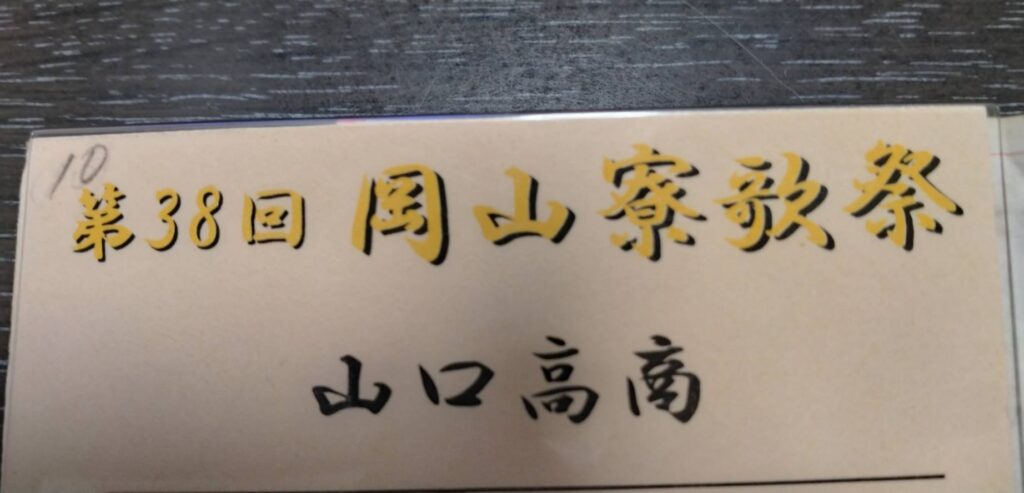 10
第38回 岡山寮歌祭
山口高商